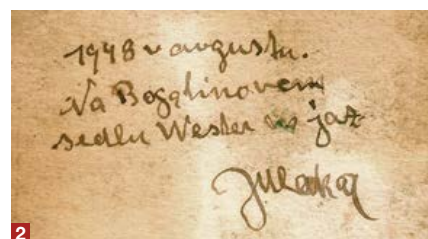 1948 v avgustu.
Na Bogatinovem
sedlu Wester in jaz
2